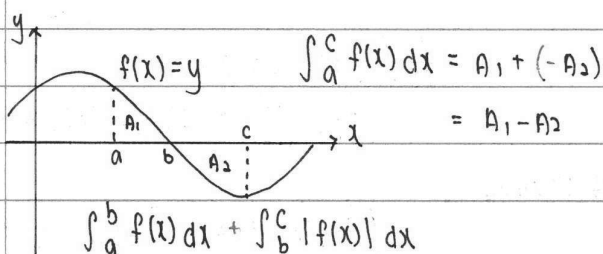 y
f(x) = y
∫ₐᶜ f(x) dx = A₁ + (-A₂)
= A₁ - A₂
A₁
a b A₂ c x
∫ₐᵇ f(x) dx + ∫ᵦᶜ |f(x)| dx